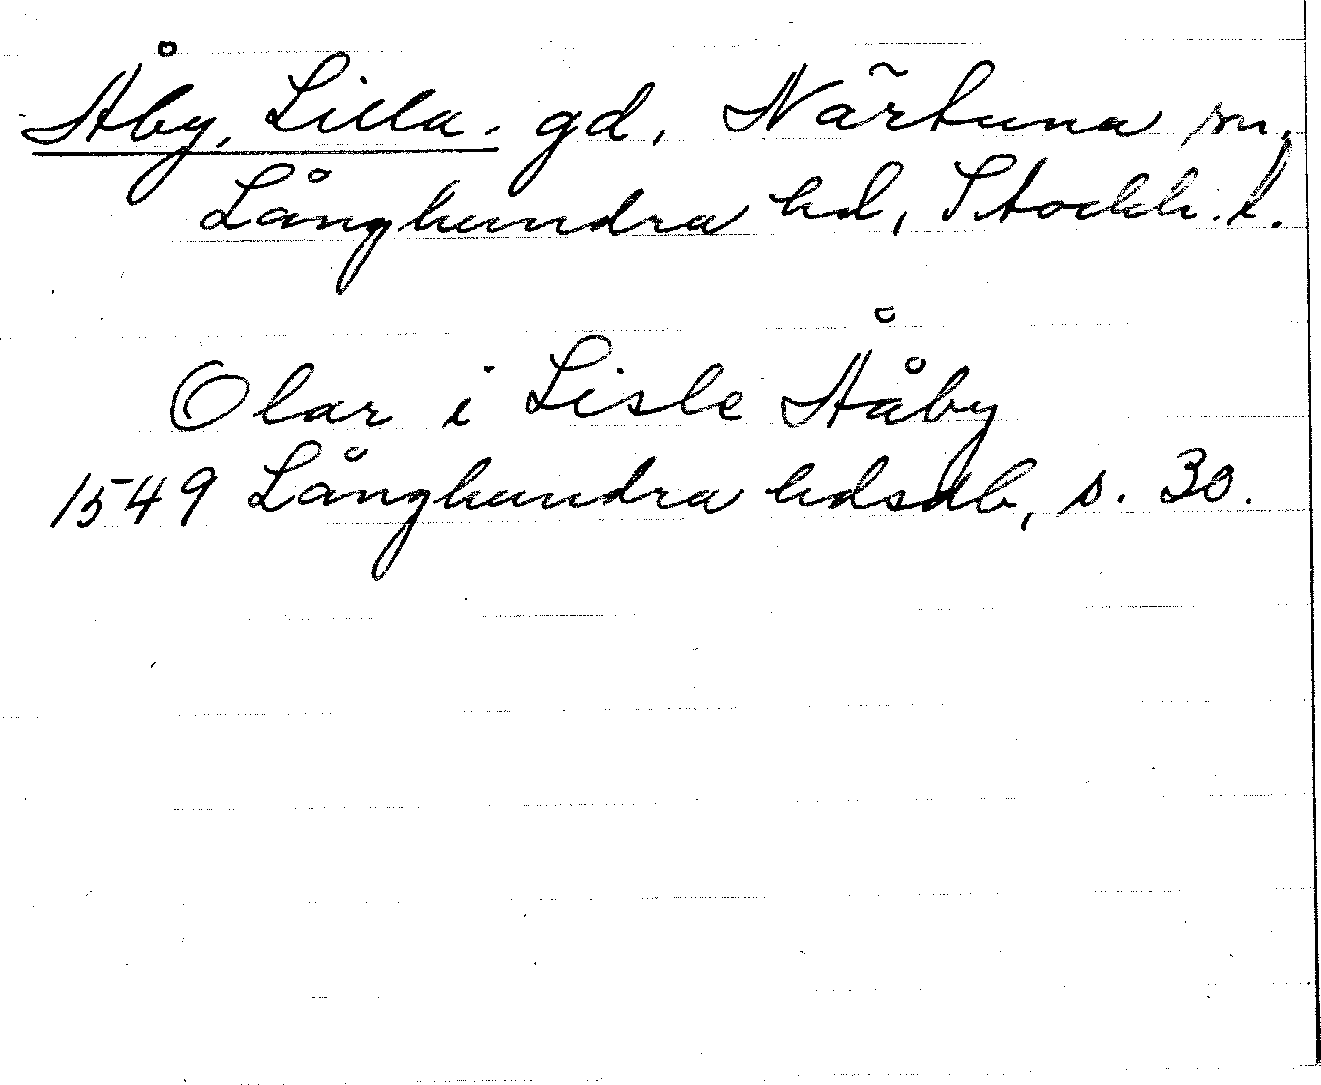 Åby, Lilla. gd, Närtuna sn,
Långhundra hd, Stockh. l.
Olar i Lisle Ååby
1549 Långhundra hdsdb, s. 30.